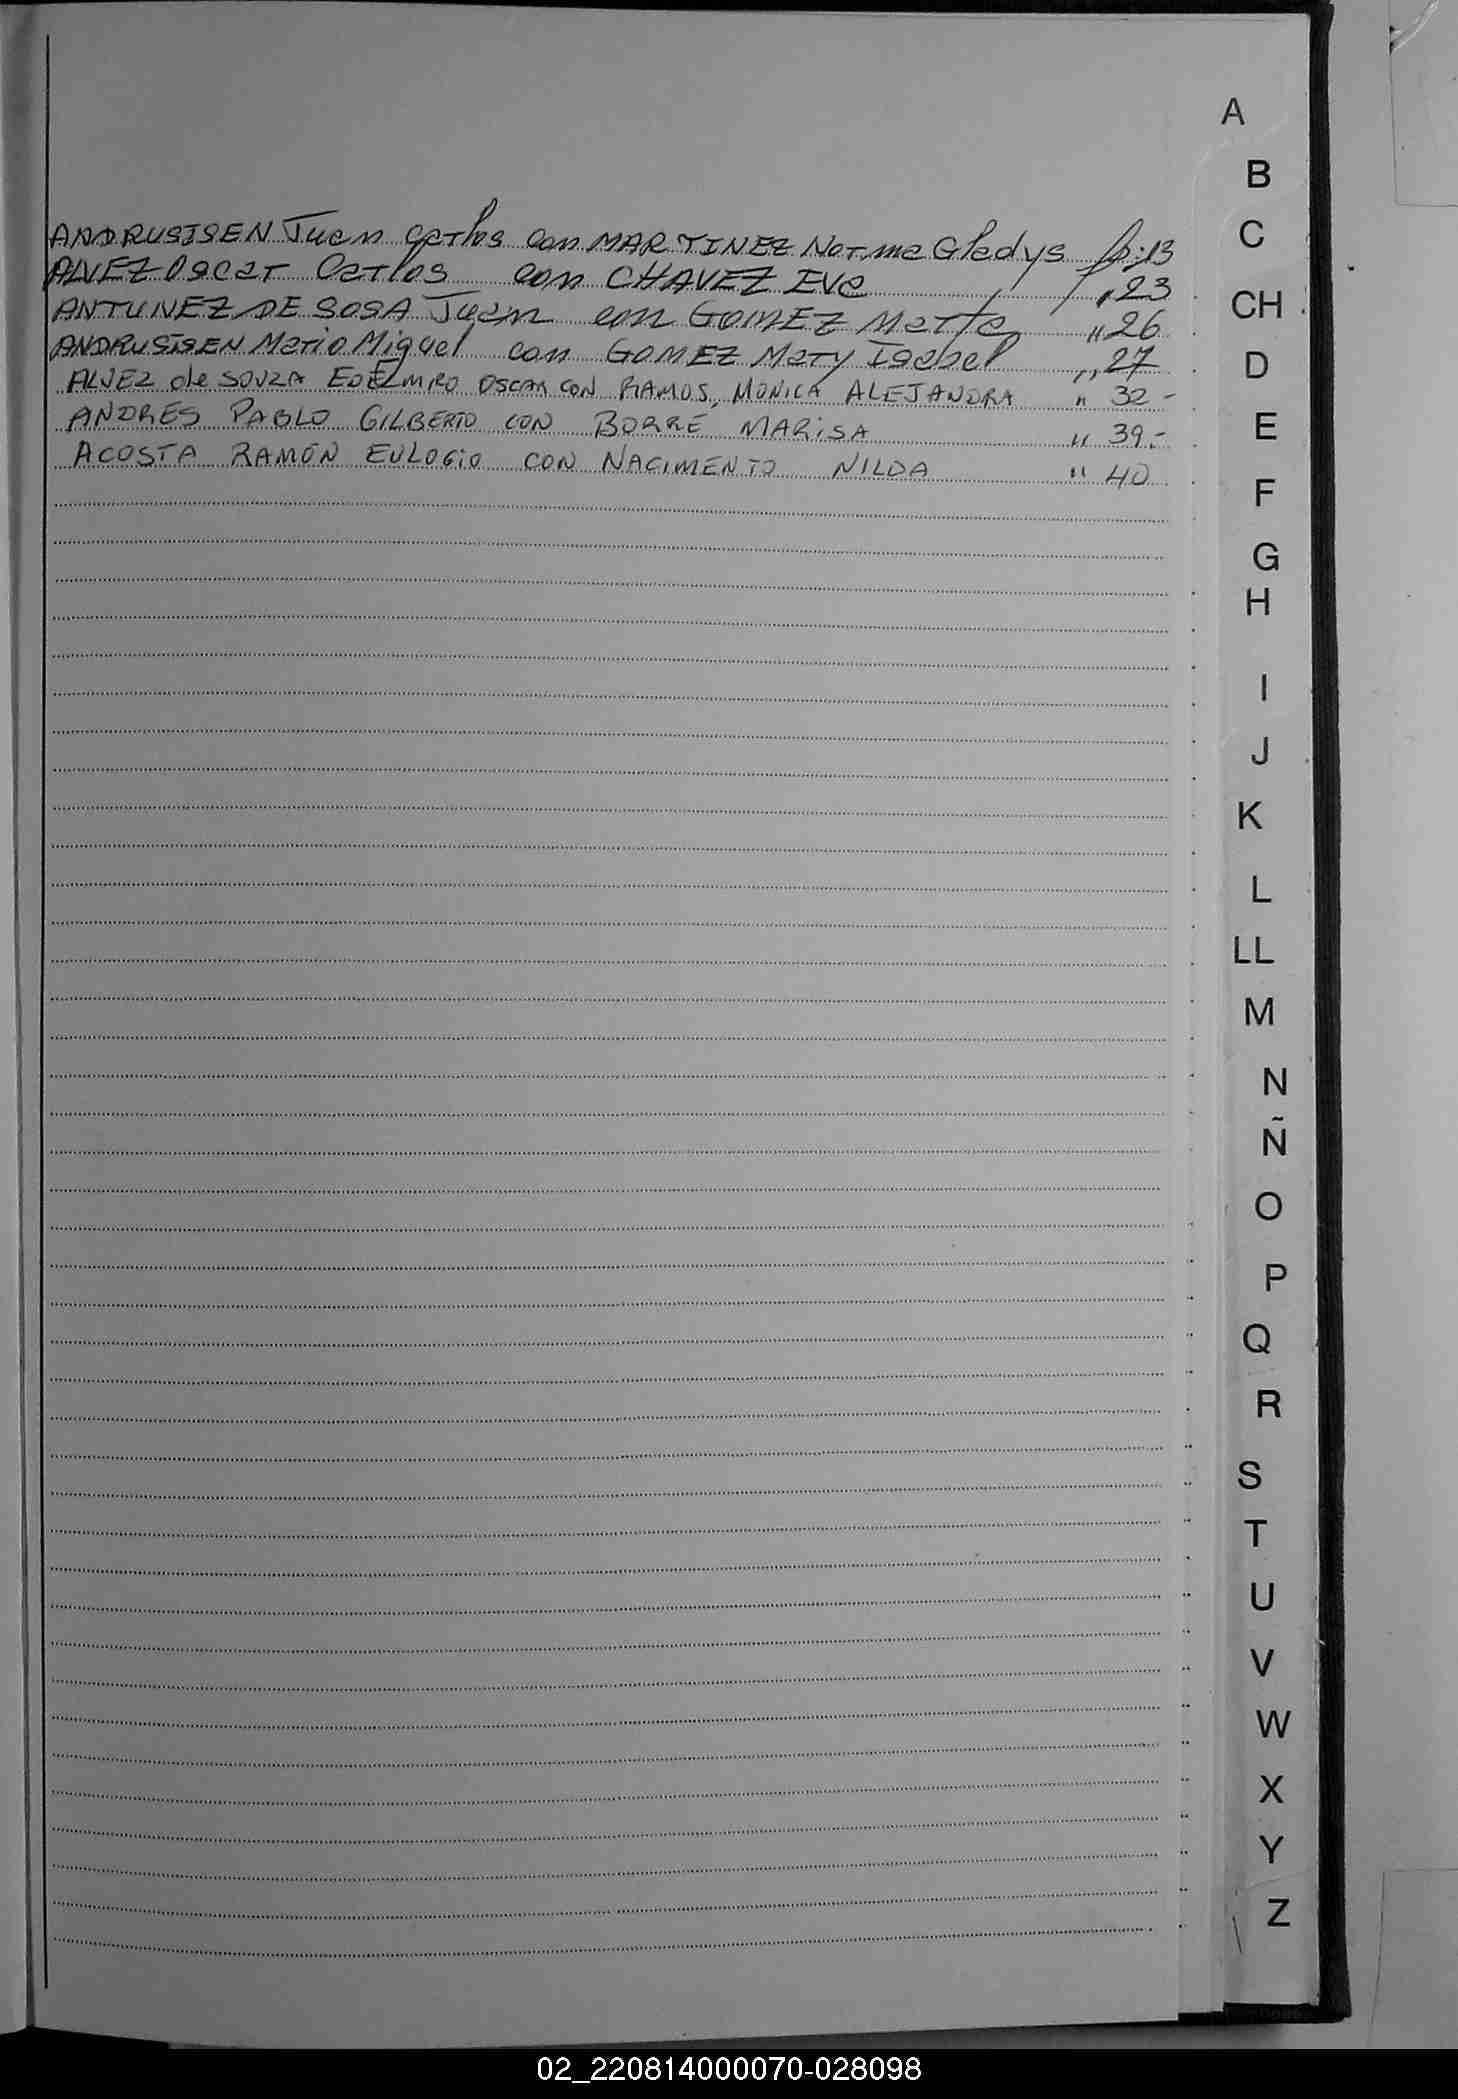 ANDRUSISEN Juan Carlos con MARTINEZ Norma Gladys fo:13
ALVEZ Oscar Carlos con CHAVEZ Eva " 23
ANTUNEZ DE SOSA Juan con GOMEZ Marta " 26
ANDRUSISEN Mario Miguel con GOMEZ Mary Isabel " 27
ALVEZ de SOUZA EDELMIRO OSCAR CON RAMOS, MONICA ALEJANDRA " 32 -
ANDRES PABLO GILBERTO CON BORRÉ MARISA " 39.-
ACOSTA RAMÓN EULOGIO CON NACIMENTO NILDA " 40
A
B
C
CH
D
E
F
G
H
I
J
K
L
LL
M
N
Ñ
O
P
Q
R
S
T
U
V
W
X
Y
Z
02_220814000070-028098